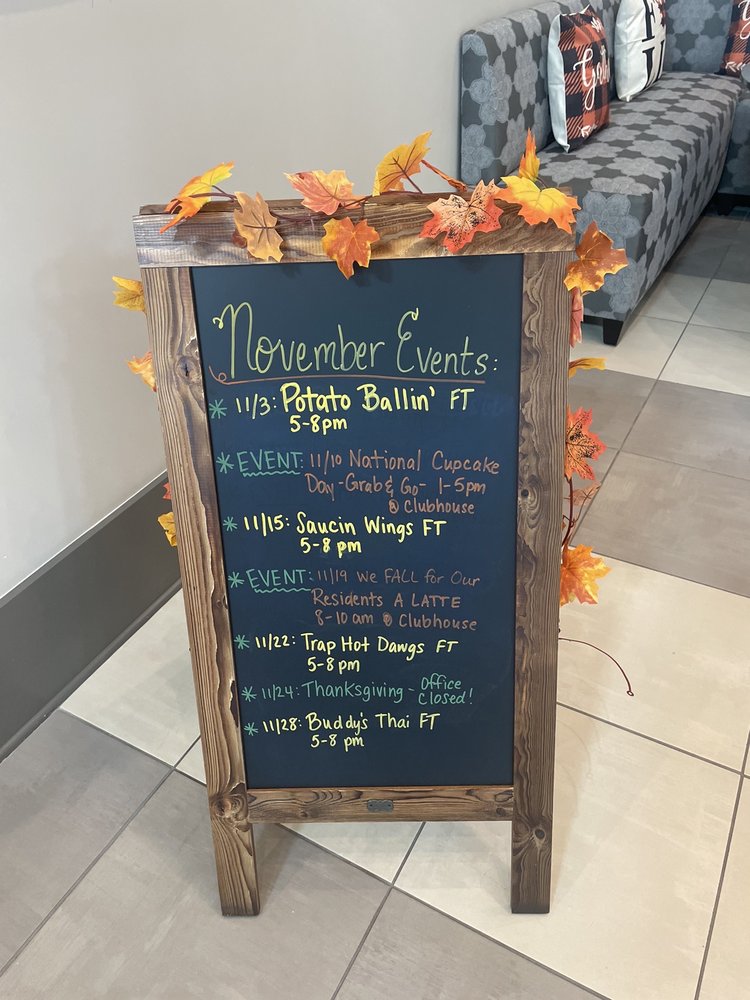 November Events:
* 11/3: Potato Ballin' FT
5-8pm
* EVENT: 11/10 National Cupcake
Day - Grab & Go - 1-5pm
@ Clubhouse
* 11/15: Saucin Wings FT
5-8 pm
* EVENT: 11/19 We FALL for Our
Residents A LATTE
8-10 am @ Clubhouse
* 11/22: Trap Hot Dawgs FT
5-8 pm
* 11/24: Thanksgiving - Office
Closed!
* 11/28: Buddy's Thai FT
5-8 pm